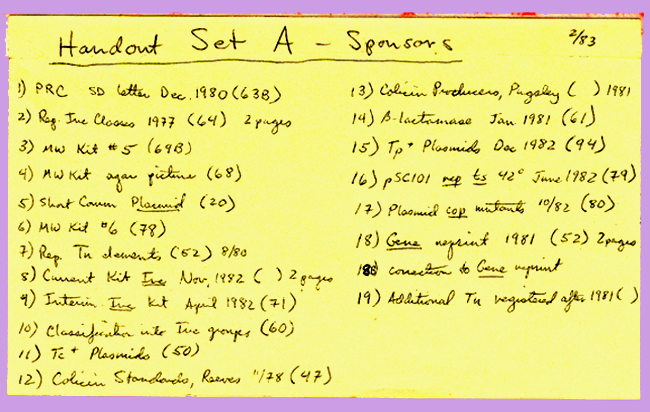 Handout Set A - Sponsors
2/83
1) PRC SD letter Dec. 1980 (63B)
2) Rep. Inc Classes 1977 (64) 2 pages
3) MW Kit #5 (69B)
4) MW Kit agar picture (68)
5) Short Comm Plasmid (20)
6) MW Kit #6 (78)
7) Rep. Tn elements (52) 8/80
8) Current Kit Inc Nov, 1982 ( ) 2 pages
9) Interim Inc Kit April 1982 (71)
10) Classification into Inc groups (60)
11) Tc+ Plasmids (50)
12) Colicin Standards, Reeves 11/78 (47)
13) Colicin Producers, Pugsley ( ) 1981
14) B-lactamase Jan 1981 (61)
15) Tp+ Plasmids Dec 1982 (94)
16) pSC101 rep ts 42° June 1982 (79)
17) Plasmid cop mutants 10/82 (80)
18) Gene reprint 1981 (52) 2 pages
18B correction to Gene reprint
19) Additional Tn registered after 1981 ( )